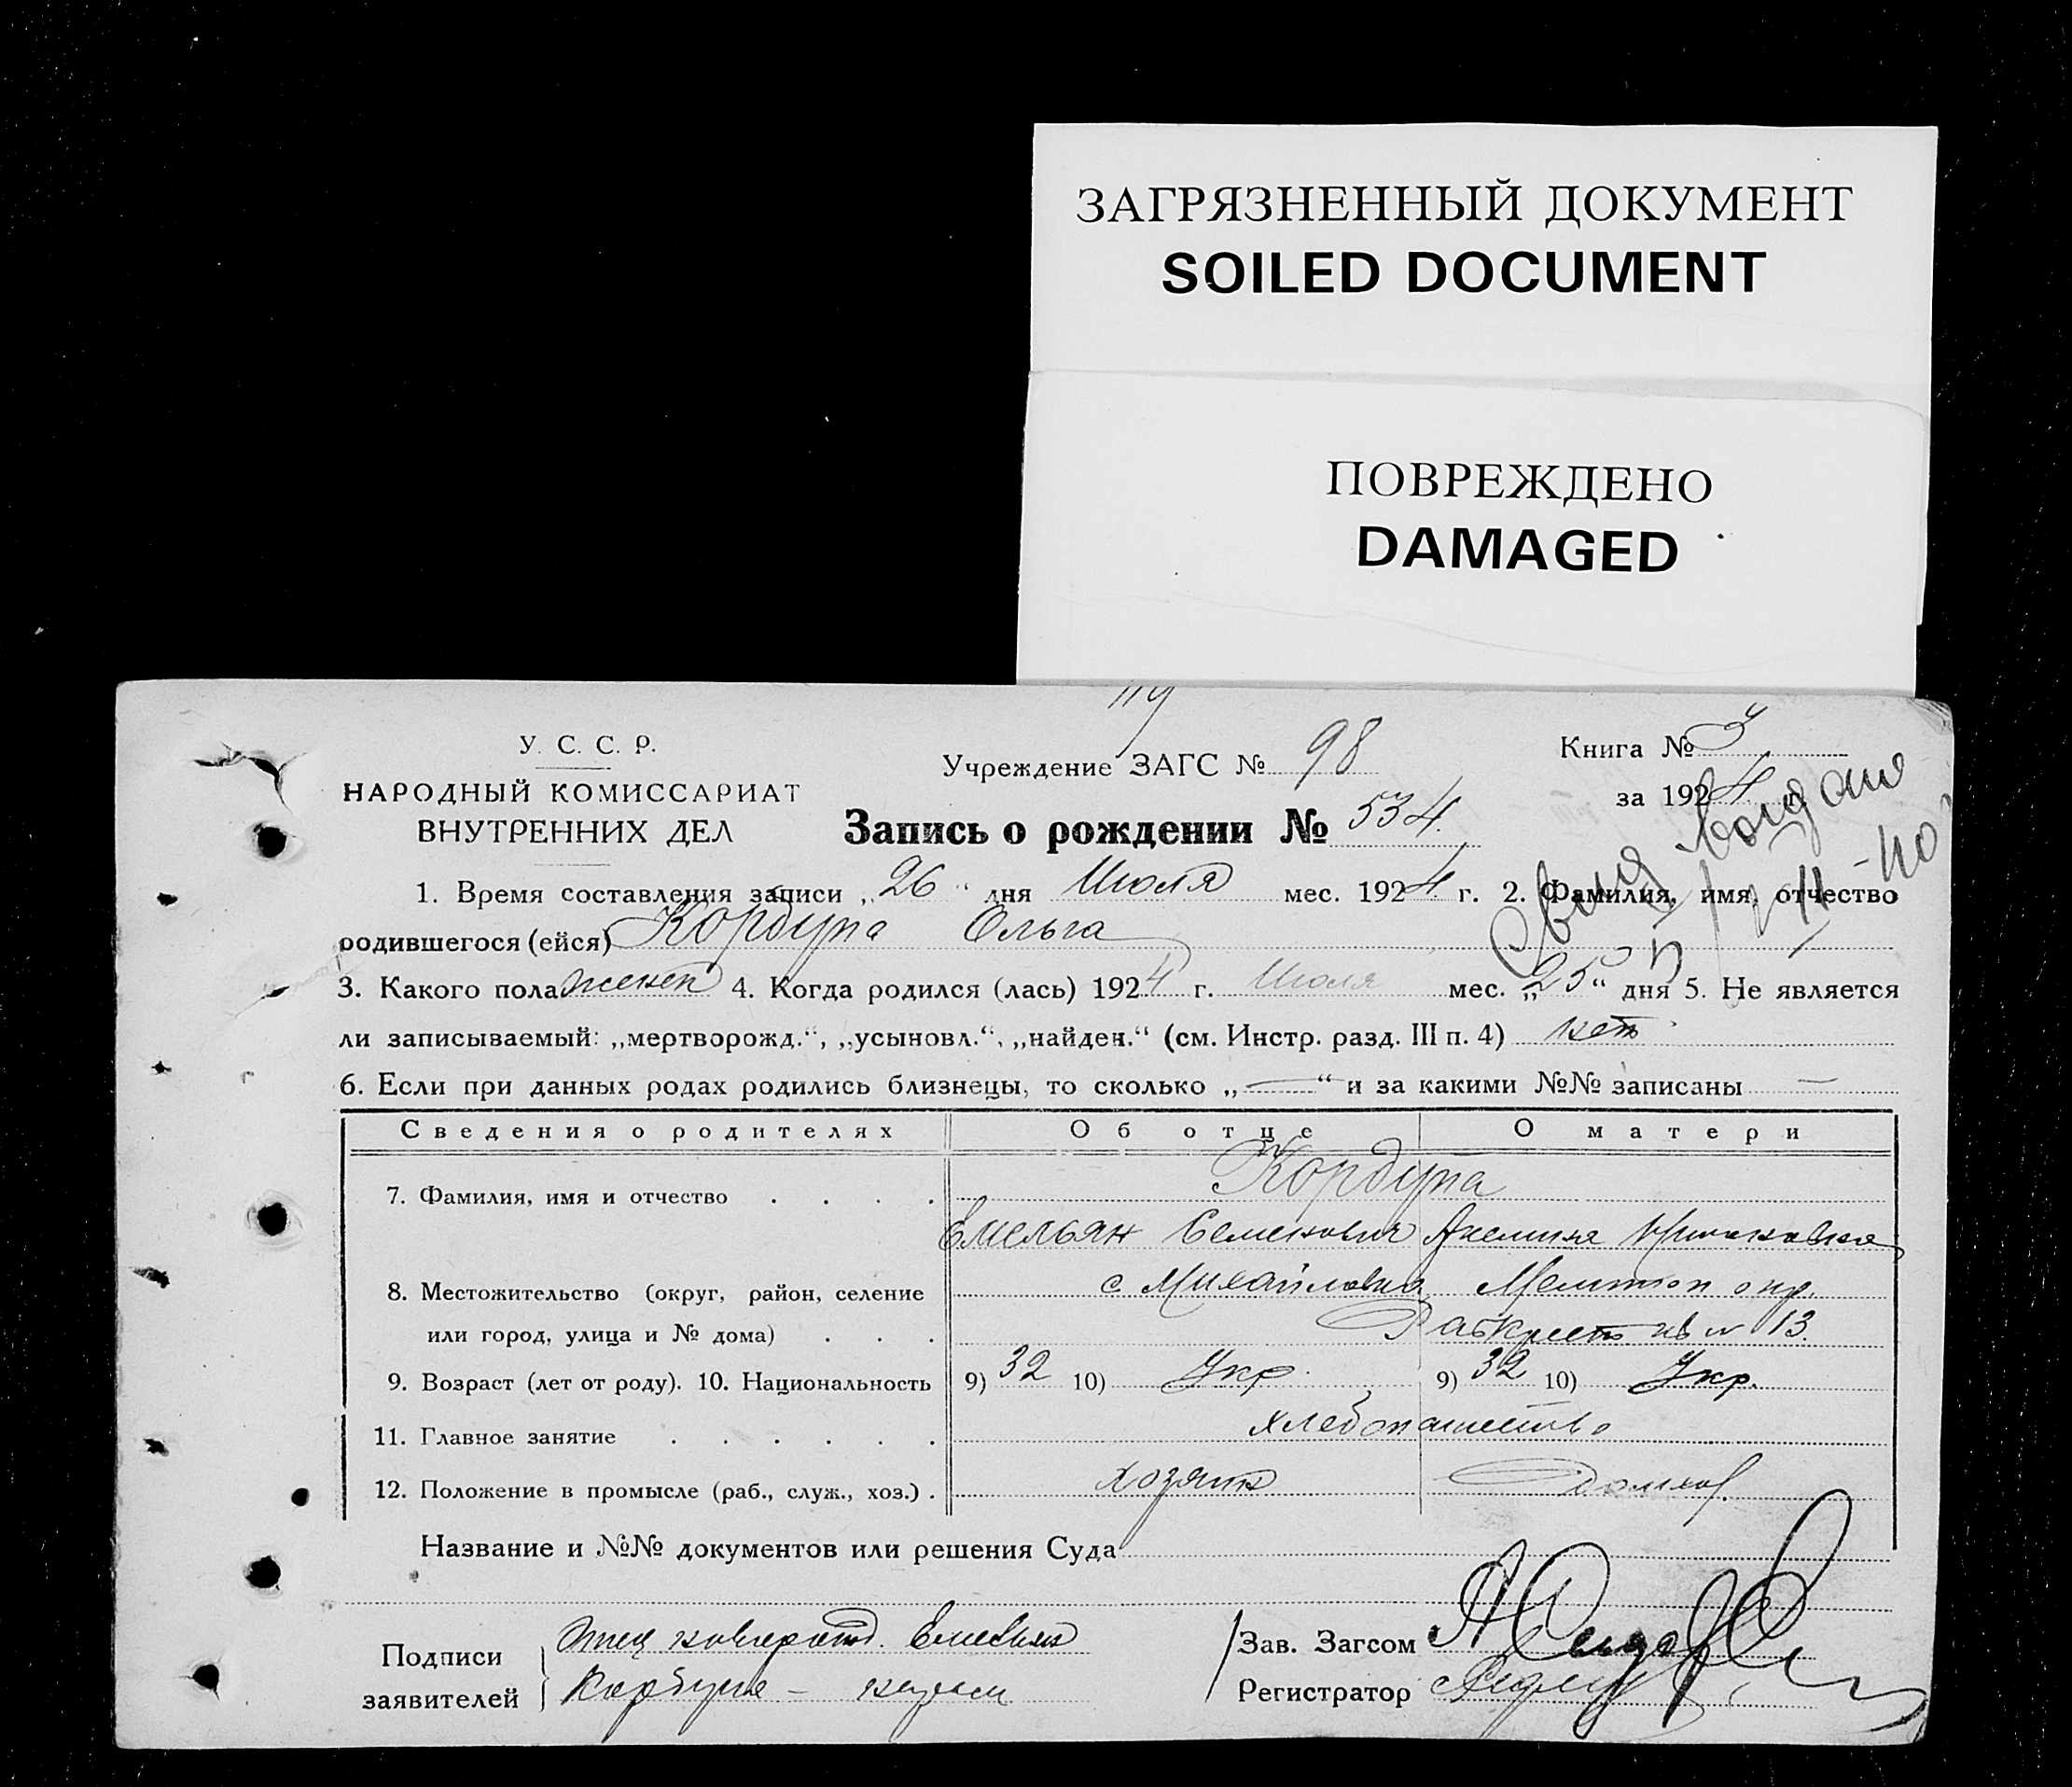 ЗАГРЯЗНЕННЫЙ ДОКУМЕНТ
SOILED DOCUMENT
ПОВРЕЖДЕНО
DAMAGED
119
У. С. С. Р.
НАРОДНЫЙ КОМИССАРИАТ
ВНУТРЕННИХ ДЕЛ
Учреждение ЗАГС № 98
Книга № 3
за 1924
Запись о рождении № 534.
1. Время составления записи „26“ дня Июля мес. 1924 г. 2. Фамилия, имя, отчество
родившегося (ейся) Корбупа Ольга
3. Какого пола женск 4. Когда родился (лась) 1924 г. Июля мес. „25“ дня 5. Не является
ли записываемый: „мертворожд.“, „усыновл.“, „найден.“ (см. Инстр. разд. III п. 4) нет
6. Если при данных родах родились близнецы, то сколько „—“ и за какими №№ записаны —
Сведения о родителях Об отце О матери
7. Фамилия, имя и отчество . . . . Корбупа
Емельян Семенович
8. Местожительство (округ, район, селение с Михайловка Мелитоп окр.
или город, улица и № дома) . . . 13.
9. Возраст (лет от роду). 10. Национальность 9) 32 10) Укр. 9) 32 10) Укр.
11. Главное занятие . . . . . . хлебопашество
12. Положение в промысле (раб., служ., хоз.) . хозяин домхоз.
Название и №№ документов или решения Суда
Подписи
заявителей
Зав. Загсом
Регистратор